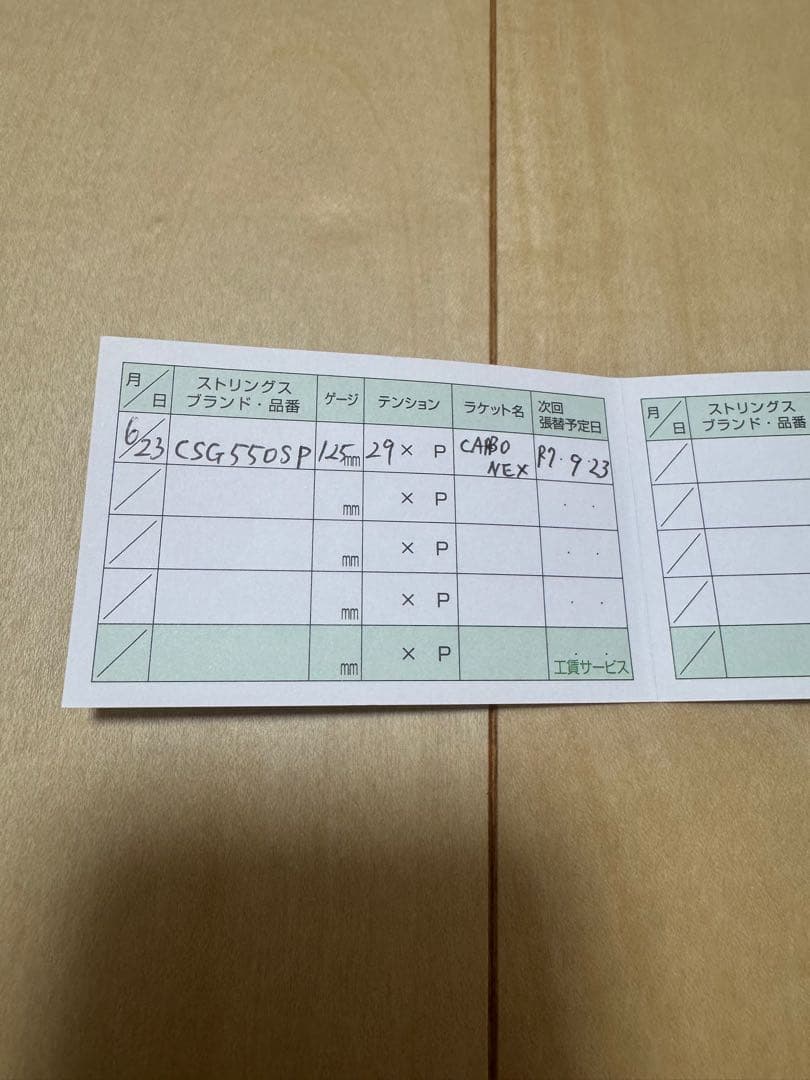 月/日 ストリングス ブランド・品番 ゲージ テンション ラケット名 次回 張替予定日
6/23 CSG550SP 125mm 29 × P CARBO NEX R7.9.23
/ mm × P . .
/ mm × P . .
/ mm × P . .
/ mm × P . . 工賃サービス
月/日 ストリングス ブランド・品番
/
/
/
/
/